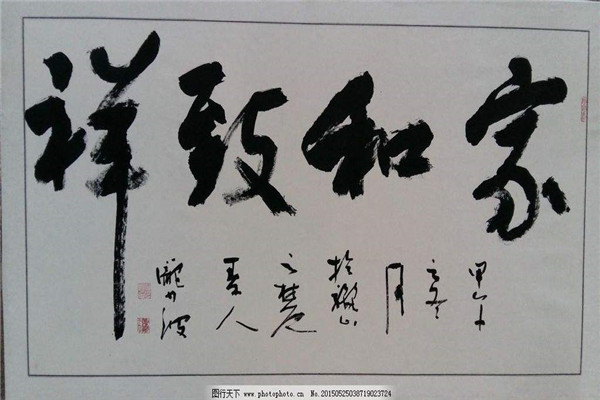 家和致祥
甲午
立冬
月
於
之
夏人
波
图行天下 www.photophoto.cn No.20150525038719023724